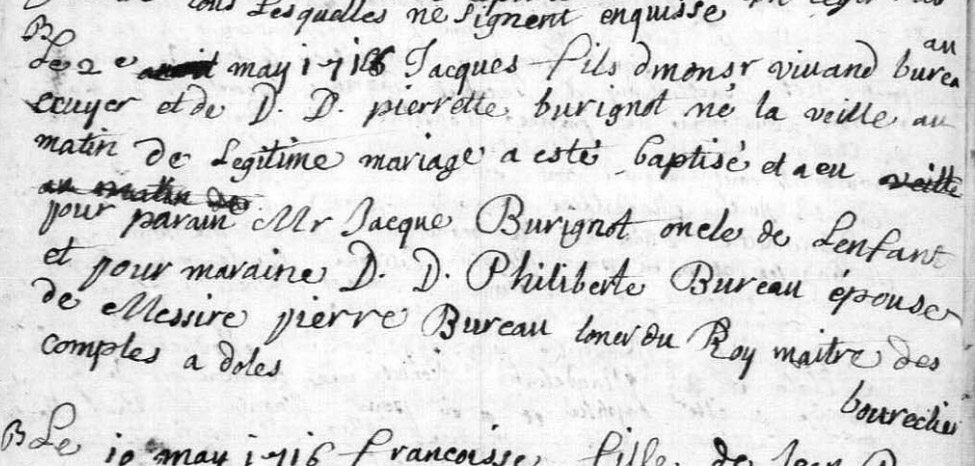 lesquelles ne signent enquisse
B
Le 2e may 1716 Jacques fils dmonsr vivand bureau
ecuyer et de D. D. pierrette burignot né la veille au
matin de Legitime mariage a esté baptisé et a eu veille
au matin de
pour parain Mr Jacque Burignot oncle de Lenfant
et pour maraine D. D. Philiberte Bureau épouse
de Messire pierre Bureau du Roy maitre des
comptes a doles
B Le 10 may 1716 francoise fille de